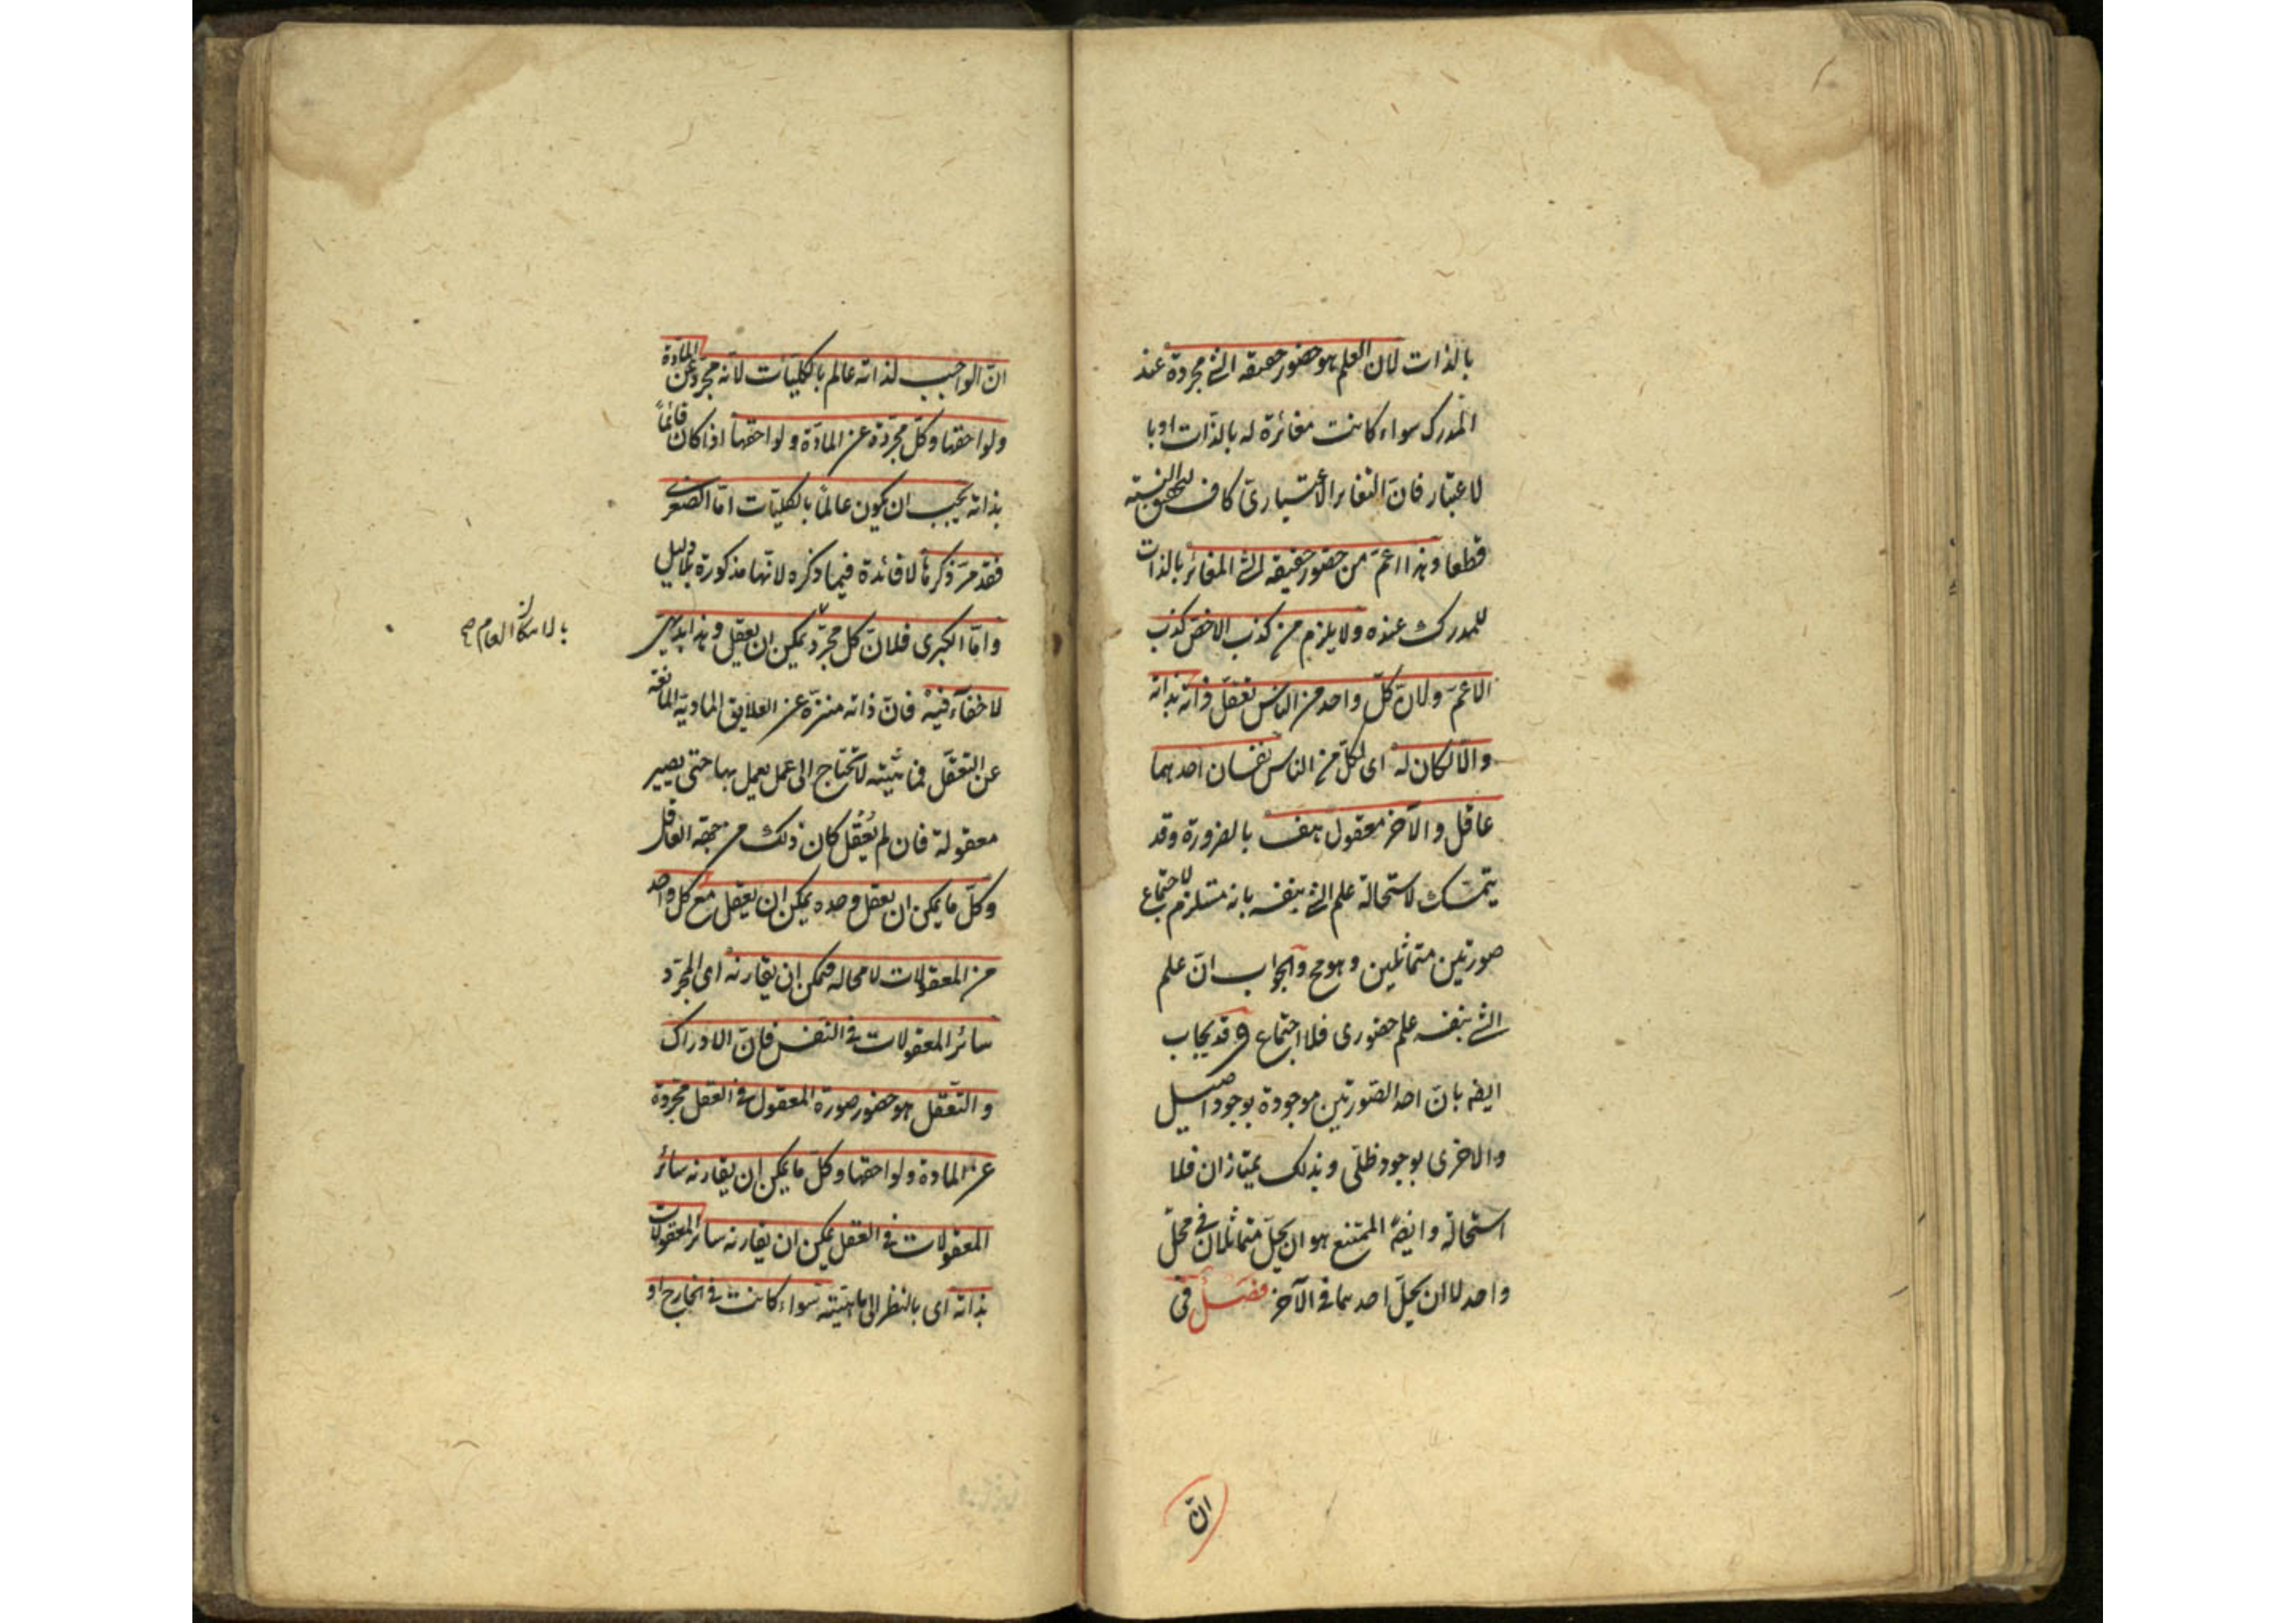 بالذات لان العلم هو حضور حقيقه الشئ مجردة عند
المدرك سواء كانت مغائرة له بالذات او با
لاعتبار فانّ التغاير الاعتباريّ كاف لتحقق النسبته
قطعا وهذا اعمّ من حضور حقيقه الشئ المغائر بالذات
للمدرك عنده ولا يلزم من كذب الاخصّ كذب
الاعمّ ولانّ كلّ واحد من الناس تعقل ذاته بذاته
والّا لكان له اى لكلّ من الناس نفسان احدهما
عاقل والآخر معقول هف بالضرورة وقد
يتمسّك لاستحالة علم الشئ بنفسه بانه مستلزم لاجتماع
صورتين متماثلين وهو مح والجواب انّ علم
الشئ بنفسه علم حضورى فلا اجتماع وقد يجاب
ايضه بانّ احد الصّورتين موجودة بوجود اصيل
والاخرى بوجود ظلّى وبذلك يمتازان فلا
استحالة وايضه الممتنع هو ان يحلّ متماثلان فى محلّ
واحد لا ان يحلّ احدهما فى الآخر فصل فى
انّ
انّ الواجب لذاته عالم بالكليّات لانّه مجرّد عن المادّة
ولواحقها وكلّ مجرّدة عن المادّة ولواحقها اذا كان قائماً
بذاته يجب ان يكون عالماً بالكليّات امّا الصغرى
فقد مرّ ذكرها لا فائدة فيما ذكره لانّها مذكورة بدليل
وامّا الكبرى فلانّ كل مجرّد يمكن ان يعقل وهذا بديهى
بالامكان العام صح
لا خفآء فيه فانّ ذاته منزّة عن العلايق الماديّة المانعة
عن التعقّل فماهيّته لا تحتاج الى عمل يعمل بها حتى يصير
معقولة فان لم يُعْقل كان ذلك من جهة العاقل
وكلّ ما يمكن ان يعقل وحده يمكن ان يعقل مع كل واحد
من المعقولات لا محاله فيمكن ان يقارنه اى المجرّد
سائر المعقولات فى النفس فانّ الادراك
والتعقّل هو حضور صورة المعقول فى العقل مجرّدة
عن المادة ولواحقها وكلّ ما يمكن ان يقارنه سائر
المعقولات فى العقل يمكن ان يقارنه سائر المعقولات
بذاته اى بالنظر الى ماهيّته سواء كانت فى الخارج او